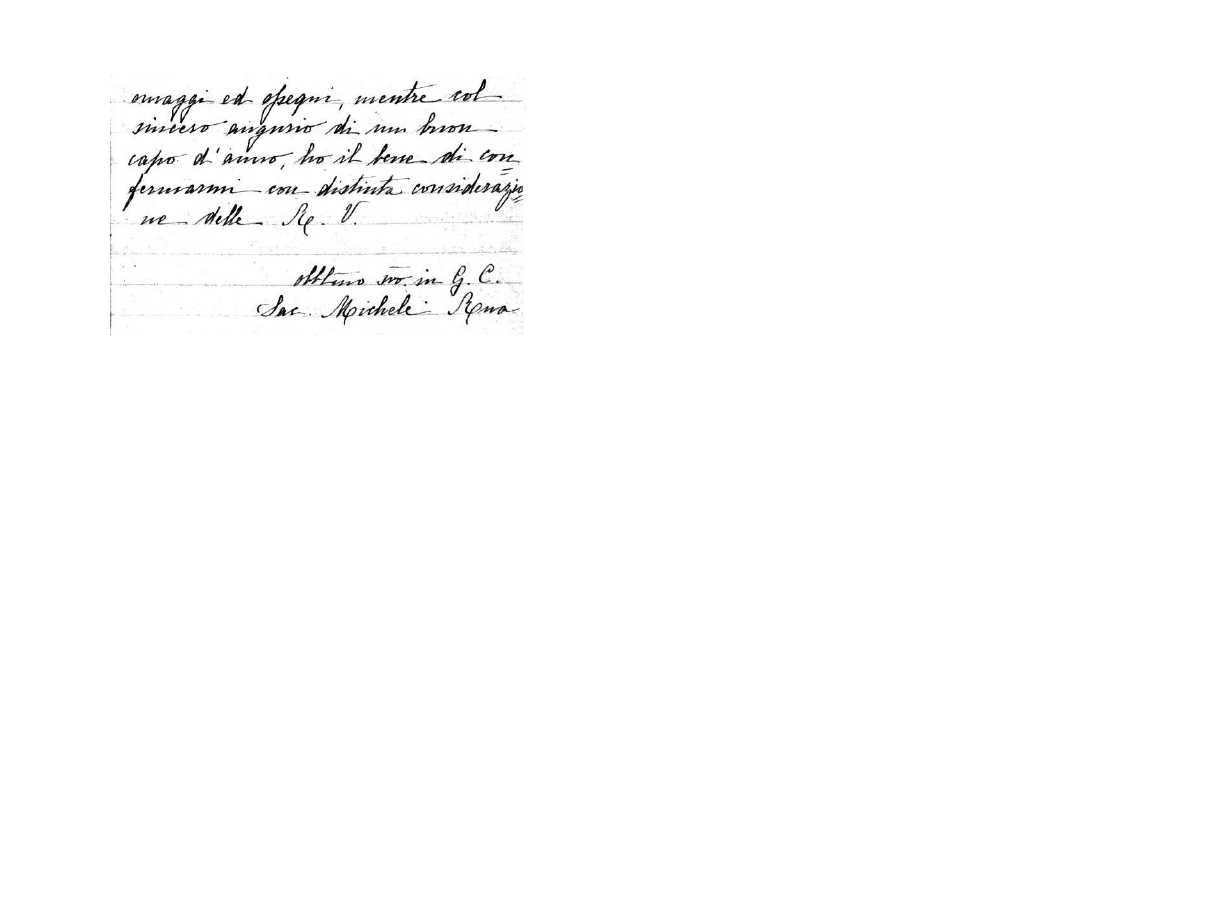 omaggi ed ossequi, mentre col
sincero augurio di un buon
capo d'anno, ho il bene di con=
fermarmi con distinta considerazio=
ne delle R. V.
obblmo svo. in G. C.
Sac. Michele Rua